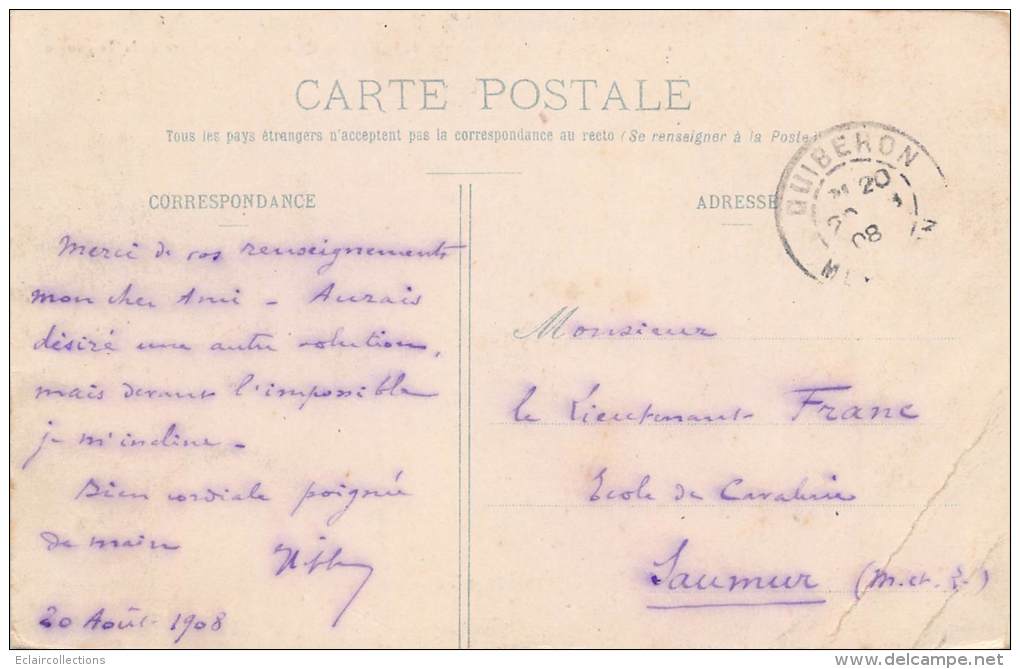 CARTE POSTALE
Tous les pays étrangers n'acceptent pas la correspondance au recto (Se renseigner à la Poste)
CORRESPONDANCE
Merci de vos renseignements
mon cher Ami - Aurais
désiré une autre solution,
mais devant l'impossible
je m'incline -
Bien cordiale poignée
de main
20 Août 1908
ADRESSE
QUIBERON
20
08
Monsieur
le Lieutenant Franc
Ecole de Cavalerie
Saumur (M. et L.)
Eclaircollections
www.delcampe.net